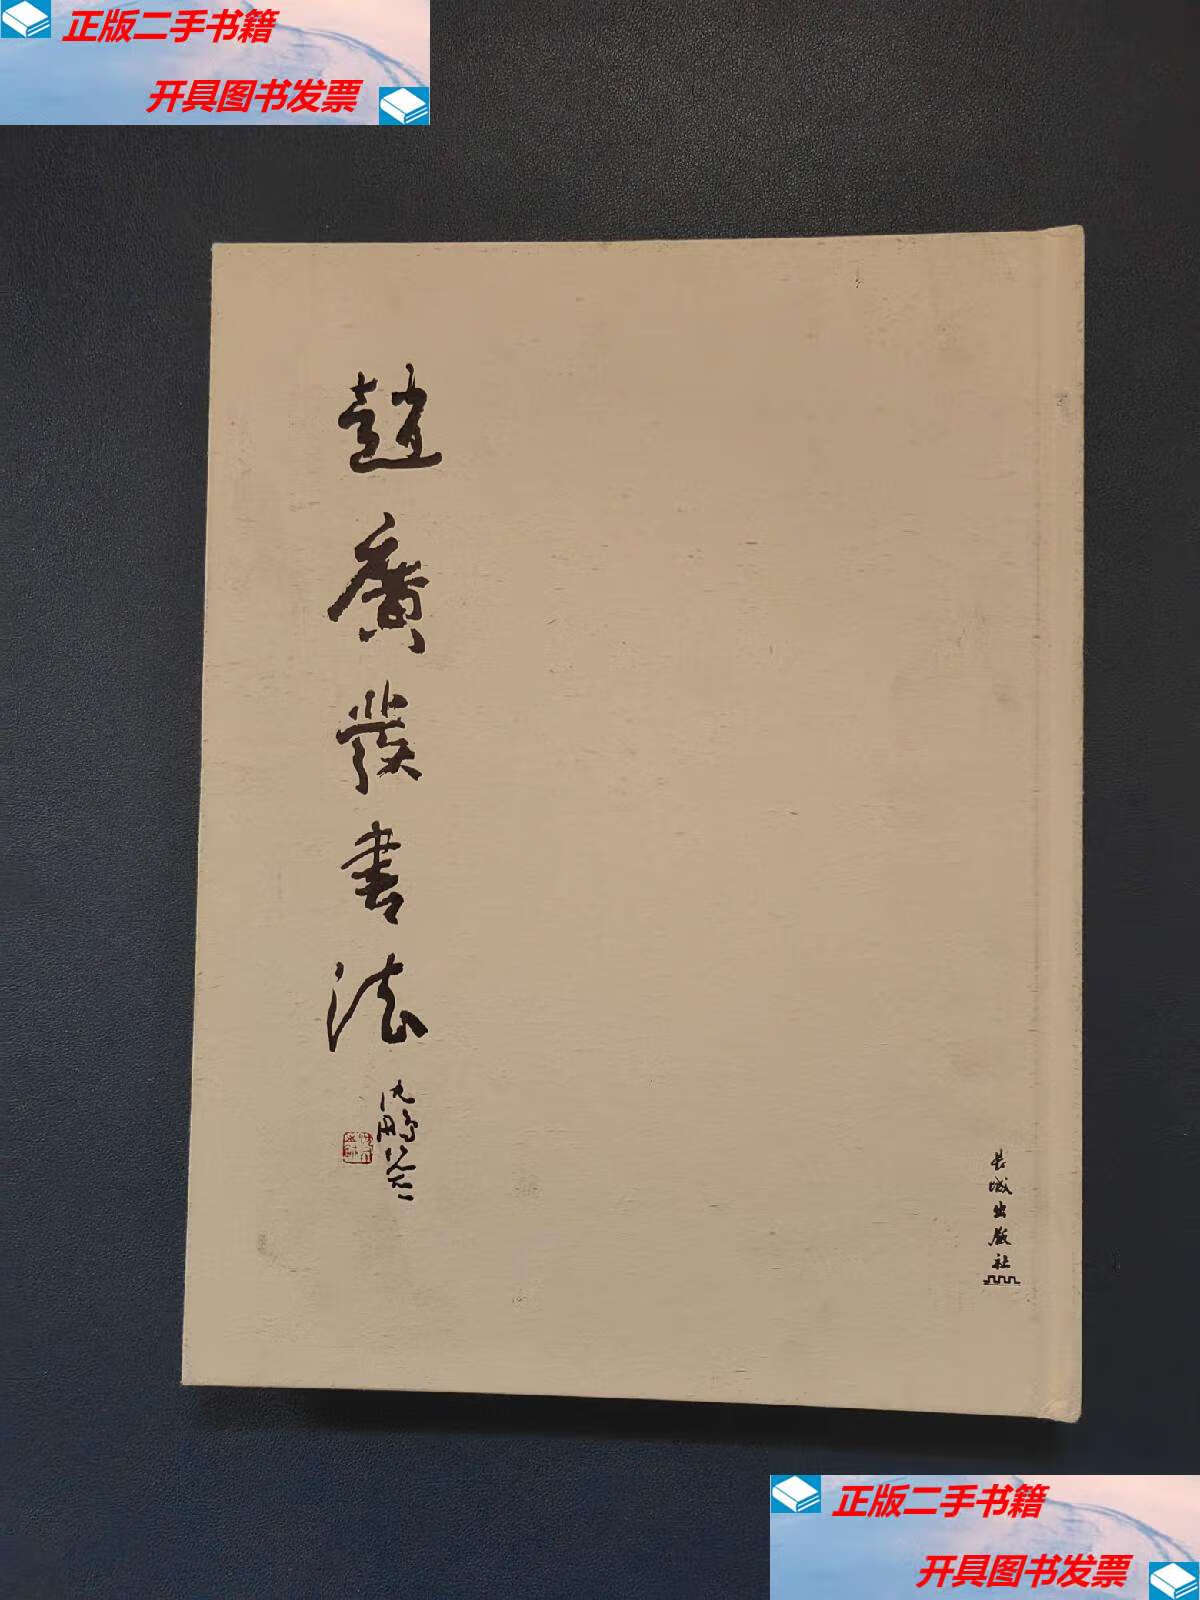 正版二手书籍
开具图书发票
趙廣發書法
沈鹏题
长城出版社
正版二手书籍
开具图书发票